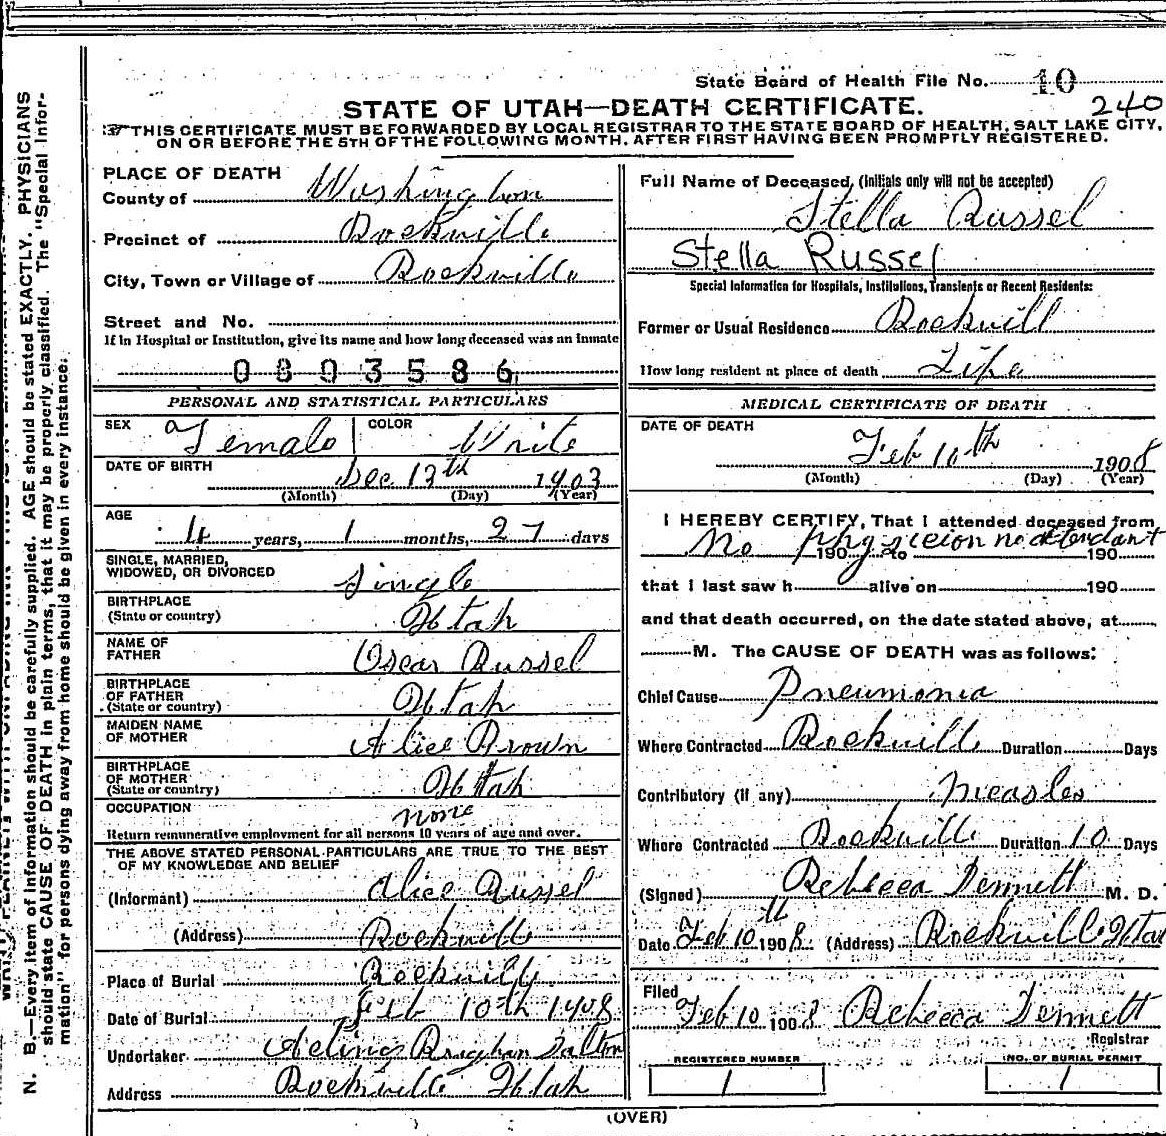 State Board of Health File No. 10
240
STATE OF UTAH—DEATH CERTIFICATE.
THIS CERTIFICATE MUST BE FORWARDED BY LOCAL REGISTRAR TO THE STATE BOARD OF HEALTH, SALT LAKE CITY,
ON OR BEFORE THE 5TH OF THE FOLLOWING MONTH, AFTER FIRST HAVING BEEN PROMPTLY REGISTERED.
N. B.—Every item of information should be carefully supplied. AGE should be stated EXACTLY. PHYSICIANS
should state CAUSE OF DEATH in plain terms, that it may be properly classified. The "Special Infor-
mation" for persons dying away from home should be given in every instance.
PLACE OF DEATH
County of Washington
Precinct of Rockville
City, Town or Village of Rockville
Street and No.
If in Hospital or Institution, give its name and how long deceased was an inmate
0803586
PERSONAL AND STATISTICAL PARTICULARS
SEX Female COLOR White
DATE OF BIRTH Dec 13th 1903
(Month) (Day) (Year)
AGE 4 years, 1 months, 27 days
SINGLE, MARRIED,
WIDOWED, OR DIVORCED Single
BIRTHPLACE
(State or country) Utah
NAME OF
FATHER Oscar Russel
BIRTHPLACE
OF FATHER
(State or country) Utah
MAIDEN NAME
OF MOTHER Alice Brown
BIRTHPLACE
OF MOTHER
(State or country) Utah
OCCUPATION none
Return remunerative employment for all persons 10 years of age and over.
THE ABOVE STATED PERSONAL PARTICULARS ARE TRUE TO THE BEST
OF MY KNOWLEDGE AND BELIEF
(Informant) Alice Russel
(Address) Rockville
Place of Burial Rockville
Date of Burial Feb 10th 1908
Undertaker Acting Brigham Dalton
Address Rockville Utah
Full Name of Deceased, (Initials only will not be accepted)
Stella Russel
Stella Russel
Special Information for Hospitals, Institutions, Transients or Recent Residents:
Former or Usual Residence Rockvill
How long resident at place of death Life
MEDICAL CERTIFICATE OF DEATH
DATE OF DEATH
Feb 10th 1908
(Month) (Day) (Year)
I HEREBY CERTIFY, That I attended deceased from
No physicion no attendant 190 to 190
that I last saw h alive on 190
and that death occurred, on the date stated above, at
M. The CAUSE OF DEATH was as follows:
Chief Cause Pneumonia
Where Contracted Rockville Duration Days
Contributory (if any) Measles
Where Contracted Rockville Duration 10 Days
(Signed) Rebecca Dennett M. D.
Date Feb 10th 1908 (Address) Rockville Utah
Filed
Feb 10 1908 Rebecca Dennett
Registrar
REGISTERED NUMBER
1
NO. OF BURIAL PERMIT
1
(OVER)